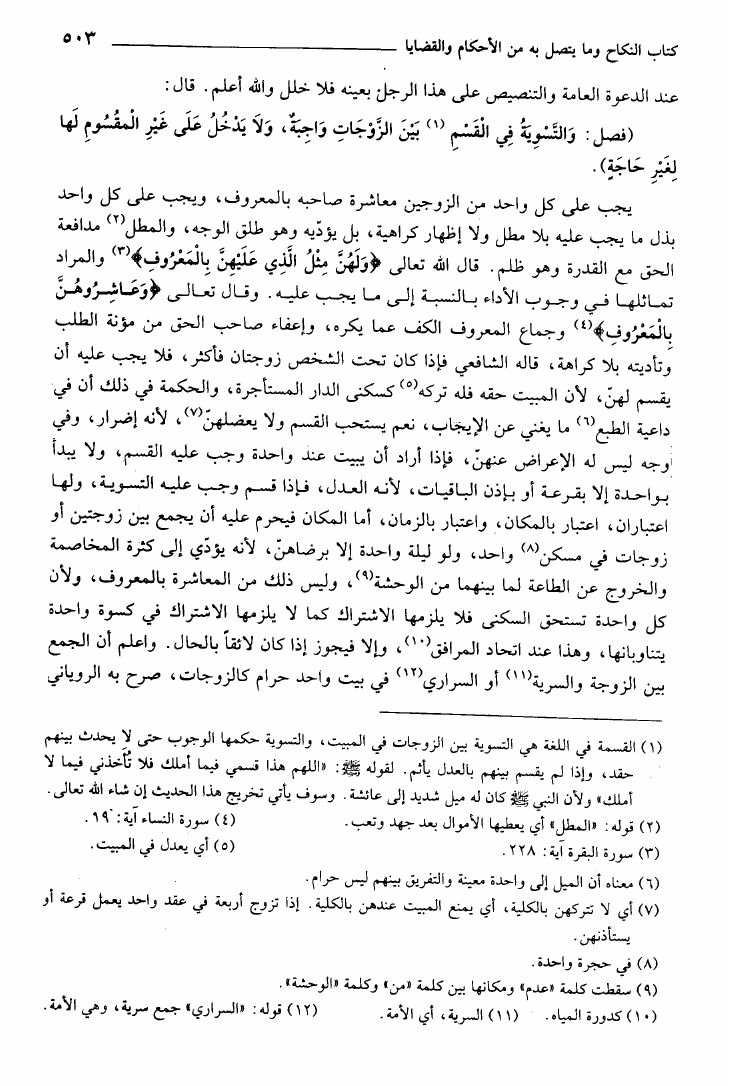 كتاب النكاح وما يتصل به من الأحكام والقضايا ٥٠٣
عند الدعوة العامة والتنصيص على هذا الرجل بعينه فلا خلل والله أعلم. قال:
(فصل: وَالتَّسْوِيَةُ فِي الْقَسْمِ (١) بَيْنَ الزَّوْجَاتِ وَاجِبَةٌ، وَلَا يَدْخُلُ عَلَى غَيْرِ الْمَقْسُومِ لَهَا
لِغَيْرِ حَاجَةٍ).
يجب على كل واحد من الزوجين معاشرة صاحبه بالمعروف، ويجب على كل واحد
بذل ما يجب عليه بلا مطل ولا إظهار كراهية، بل يؤدّيه وهو طلق الوجه، والمطل(٢) مدافعة
الحق مع القدرة وهو ظلم. قال الله تعالى ﴿وَلَهُنَّ مِثْلُ الَّذِي عَلَيْهِنَّ بِالْمَعْرُوفِ﴾(٣) والمراد
تماثلهما في وجوب الأداء بالنسبة إلى ما يجب عليه. وقال تعالى ﴿وَعَاشِرُوهُنَّ
بِالْمَعْرُوفِ﴾(٤) وجماع المعروف الكف عما يكره، وإعفاء صاحب الحق من مؤنة الطلب
وتأديته بلا كراهة، قاله الشافعي فإذا كان تحت الشخص زوجتان فأكثر، فلا يجب عليه أن
يقسم لهنّ، لأن المبيت حقه فله تركه(٥) كسكنى الدار المستأجرة، والحكمة في ذلك أن في
داعية الطبع(٦) ما يغني عن الإيجاب، نعم يستحب القسم ولا يعضلهنّ(٧)، لأنه إضرار، وفي
وجه ليس له الإعراض عنهنّ، فإذا أراد أن يبيت عند واحدة وجب عليه القسم، ولا يبدأ
بواحدة إلا بقرعة أو بإذن الباقيات، لأنه العدل، فإذا قسم وجب عليه التسوية، ولها
اعتباران، اعتبار بالمكان، واعتبار بالزمان، أما المكان فيحرم عليه أن يجمع بين زوجتين أو
زوجات في مسكن(٨) واحد، ولو ليلة واحدة إلا برضاهنّ، لأنه يؤدّي إلى كثرة المخاصمة
والخروج عن الطاعة لما بينهما من الوحشة(٩)، وليس ذلك من المعاشرة بالمعروف، ولأن
كل واحدة تستحق السكنى فلا يلزمها الاشتراك كما لا يلزمها الاشتراك في كسوة واحدة
يتناوبانها، وهذا عند اتحاد المرافق(١٠)، وإلا فيجوز إذا كان لائقاً بالحال. واعلم أن الجمع
بين الزوجة والسرية(١١) أو السراري(١٢) في بيت واحد حرام كالزوجات، صرح به الروياني
(١) القسمة في اللغة هي التسوية بين الزوجات في المبيت، والتسوية حكمها الوجوب حتى لا يحدث بينهم
حقد، وإذا لم يقسم بينهم بالعدل يأثم. لقوله ﷺ: «اللهم هذا قسمي فيما أملك فلا تُأخذني فيما لا
أملك» ولأن النبي ﷺ كان له ميل شديد إلى عائشة. وسوف يأتي تخريج هذا الحديث إن شاء الله تعالى.
(٢) قوله: «المطل» أي يعطيها الأموال بعد جهد وتعب. (٤) سورة النساء آية: ١٩.
(٣) سورة البقرة آية: ٢٢٨. (٥) أي يعدل في المبيت.
(٦) معناه أن الميل إلى واحدة معينة والتفريق بينهم ليس حرام.
(٧) أي لا تتركهن بالكلية، أي يمنع المبيت عندهن بالكلية. إذا تزوج أربعة في عقد واحد يعمل قرعة أو
يستأذنهن.
(٨) في حجرة واحدة.
(٩) سقطت كلمة «عدم» ومكانها بين كلمة «من» وكلمة «الوحشة».
(١٠) كدورة المياه. (١١) السرية، أي الأمة. (١٢) قوله: «السراري» جمع سرية، وهي الأمة.